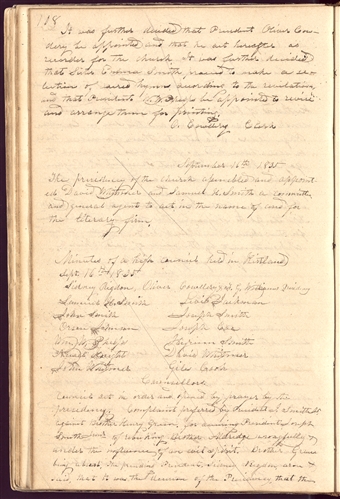 118
It was further decided that President Oliver Cow-
dery be appointed and that he act hereafter as
recorder for the church. It was further decided
that Sister Emma Smith proceed to make a se-
lection of sacred hymns according to the revelation,
and that President W. W. Phelps be appointed to revise
and arrange them for printing.
O. Cowdery Clerk
September 16th 1835
The presidency of the church assembled and appoint
ed David Whitmer and Samuel H. Smith a committee
and general agents to act in the name of and for
the literary firm.
Minutes of a high council held in Kirtland
Sept 16th 1835
Sidney Rigdon, Oliver Cowdery & F. G. Williams
Samuel H. Smith
John Smith Joseph Smith
Orson Johnson Joseph Coe
W. W. Phelps Hyrum Smith
David Whitmer
John Whitmer
Councillors
Council met in order and opened by prayer by the
presidency. Complaint prefered by President
against brother Henry Green, for accusing President Joseph
Smith of Brother Aldridge wrongfully &
under the influence of an evil spirit. Brother Green